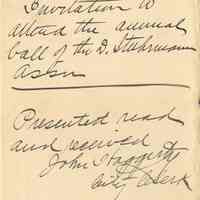 Invitation to
attend the annual
ball of the D. Stuhrmann
Assn
Presented read
and received
John Haggerty
City Clerk